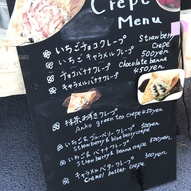 Crepe
Menu
いちごチョコクレープ 500yen
Strawberry
crepe
いちごキャラメルクレープ 500yen
チョコバナナクレープ chocolate banana
キャラメルバナナクレープ 450yen
抹茶あずきクレープ 450yen
Anko green tea crepe
いちご&ブルーベリークレープ 500yen
Strawberry & blueberry crepe
いちご&バナナクレープ 500yen
Strawberry & banana crepe
キャラメルバタークレープ
Caramel butter crepe